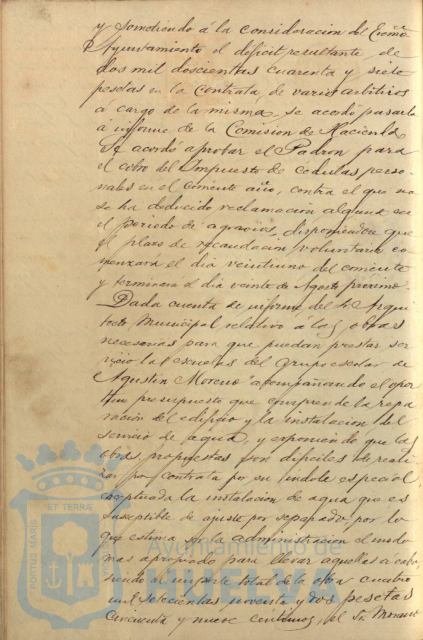 y sometiendo á la consideracion del Excmo
Ayuntamiento el deficit resultante de
dos mil doscientas cuarenta y siete
pesetas en la Contrata de varios arbitrios
á cargo de la misma, se acordó pasarla
á informe de la Comision de Hacienda
Se acordó aprobar el Padron para
el cobro del Impuesto de cedulas perso-
nales en el corriente año, contra el que no
se ha deducido reclamacion alguna en
el periodo de agravios, disponiendo que
el plazo de recaudacion voluntaria co-
menzará el dia veintiuno del corriente
y terminará el dia veinte de Agosto próximo.
Dada cuenta de informe del Sr. Arqui
tecto Municipal relativo á las obras
necesarias para que puedan prestar ser
vicio las escuelas del Grupo escolar de
Agustin Moreno acompañando el opor
tuno presupuesto que comprende la repa
ración del edificio y la instalacion del
servicio de agua, y exponiendo que las
obras propuestas son dificiles de reali
zar por contrata por su indole especial
exceptuada la instalacion de agua que es
susceptible de ajuste por separado, por lo
que estima sea la administracion el modo
mas apropiado para llevar aquellas á cabo
siendo el importe total de la obra cuatro
mil setecientas noventa y dos pesetas
cincuenta y nueve centimos, el Sr. Moreno
PORTUS MARIS ET TERRAE
Ayuntamiento de